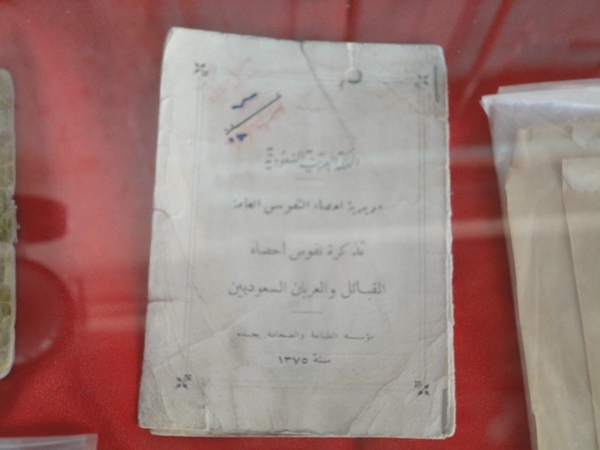 المملكة العربية السعودية
مديرية احصاء النفوس العامة
تذكرة نفوس احصاء
القبائل والعربان السعوديين
مؤسسة الطباعة والصحافة بجده
سنة ١٣٧٥